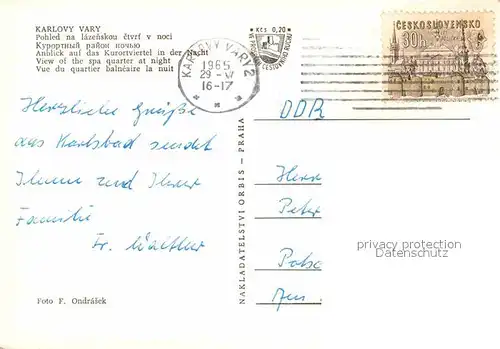 KARLOVY VARY
Pohled na lázeňskou čtvrť v noci
Курортный район ночью
Anblick auf das Kurortviertel in der Nacht
View of the spa quarter at night
Vue du quartier balnéaire la nuit
KARLOVY VARY 2
1965
29 -VI
16-17
Kčs 0,20
ČESKOSLOVENSKO
30h
Herzliche Grüße
aus Karlsbad sendet
Ihnen und Ihrer
Familie
Fr. Walther
Foto F. Ondrášek
NAKLADATELSTVÍ ORBIS - PRAHA
DDR
Herr
Peter
privacy protection
Datenschutz